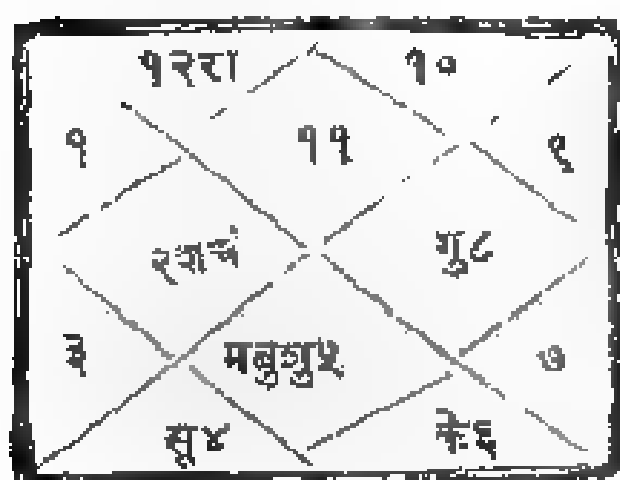 १२रा
१०
१
११
९
२शचं
गु८
३
मबुशु५
७
सु४
के६